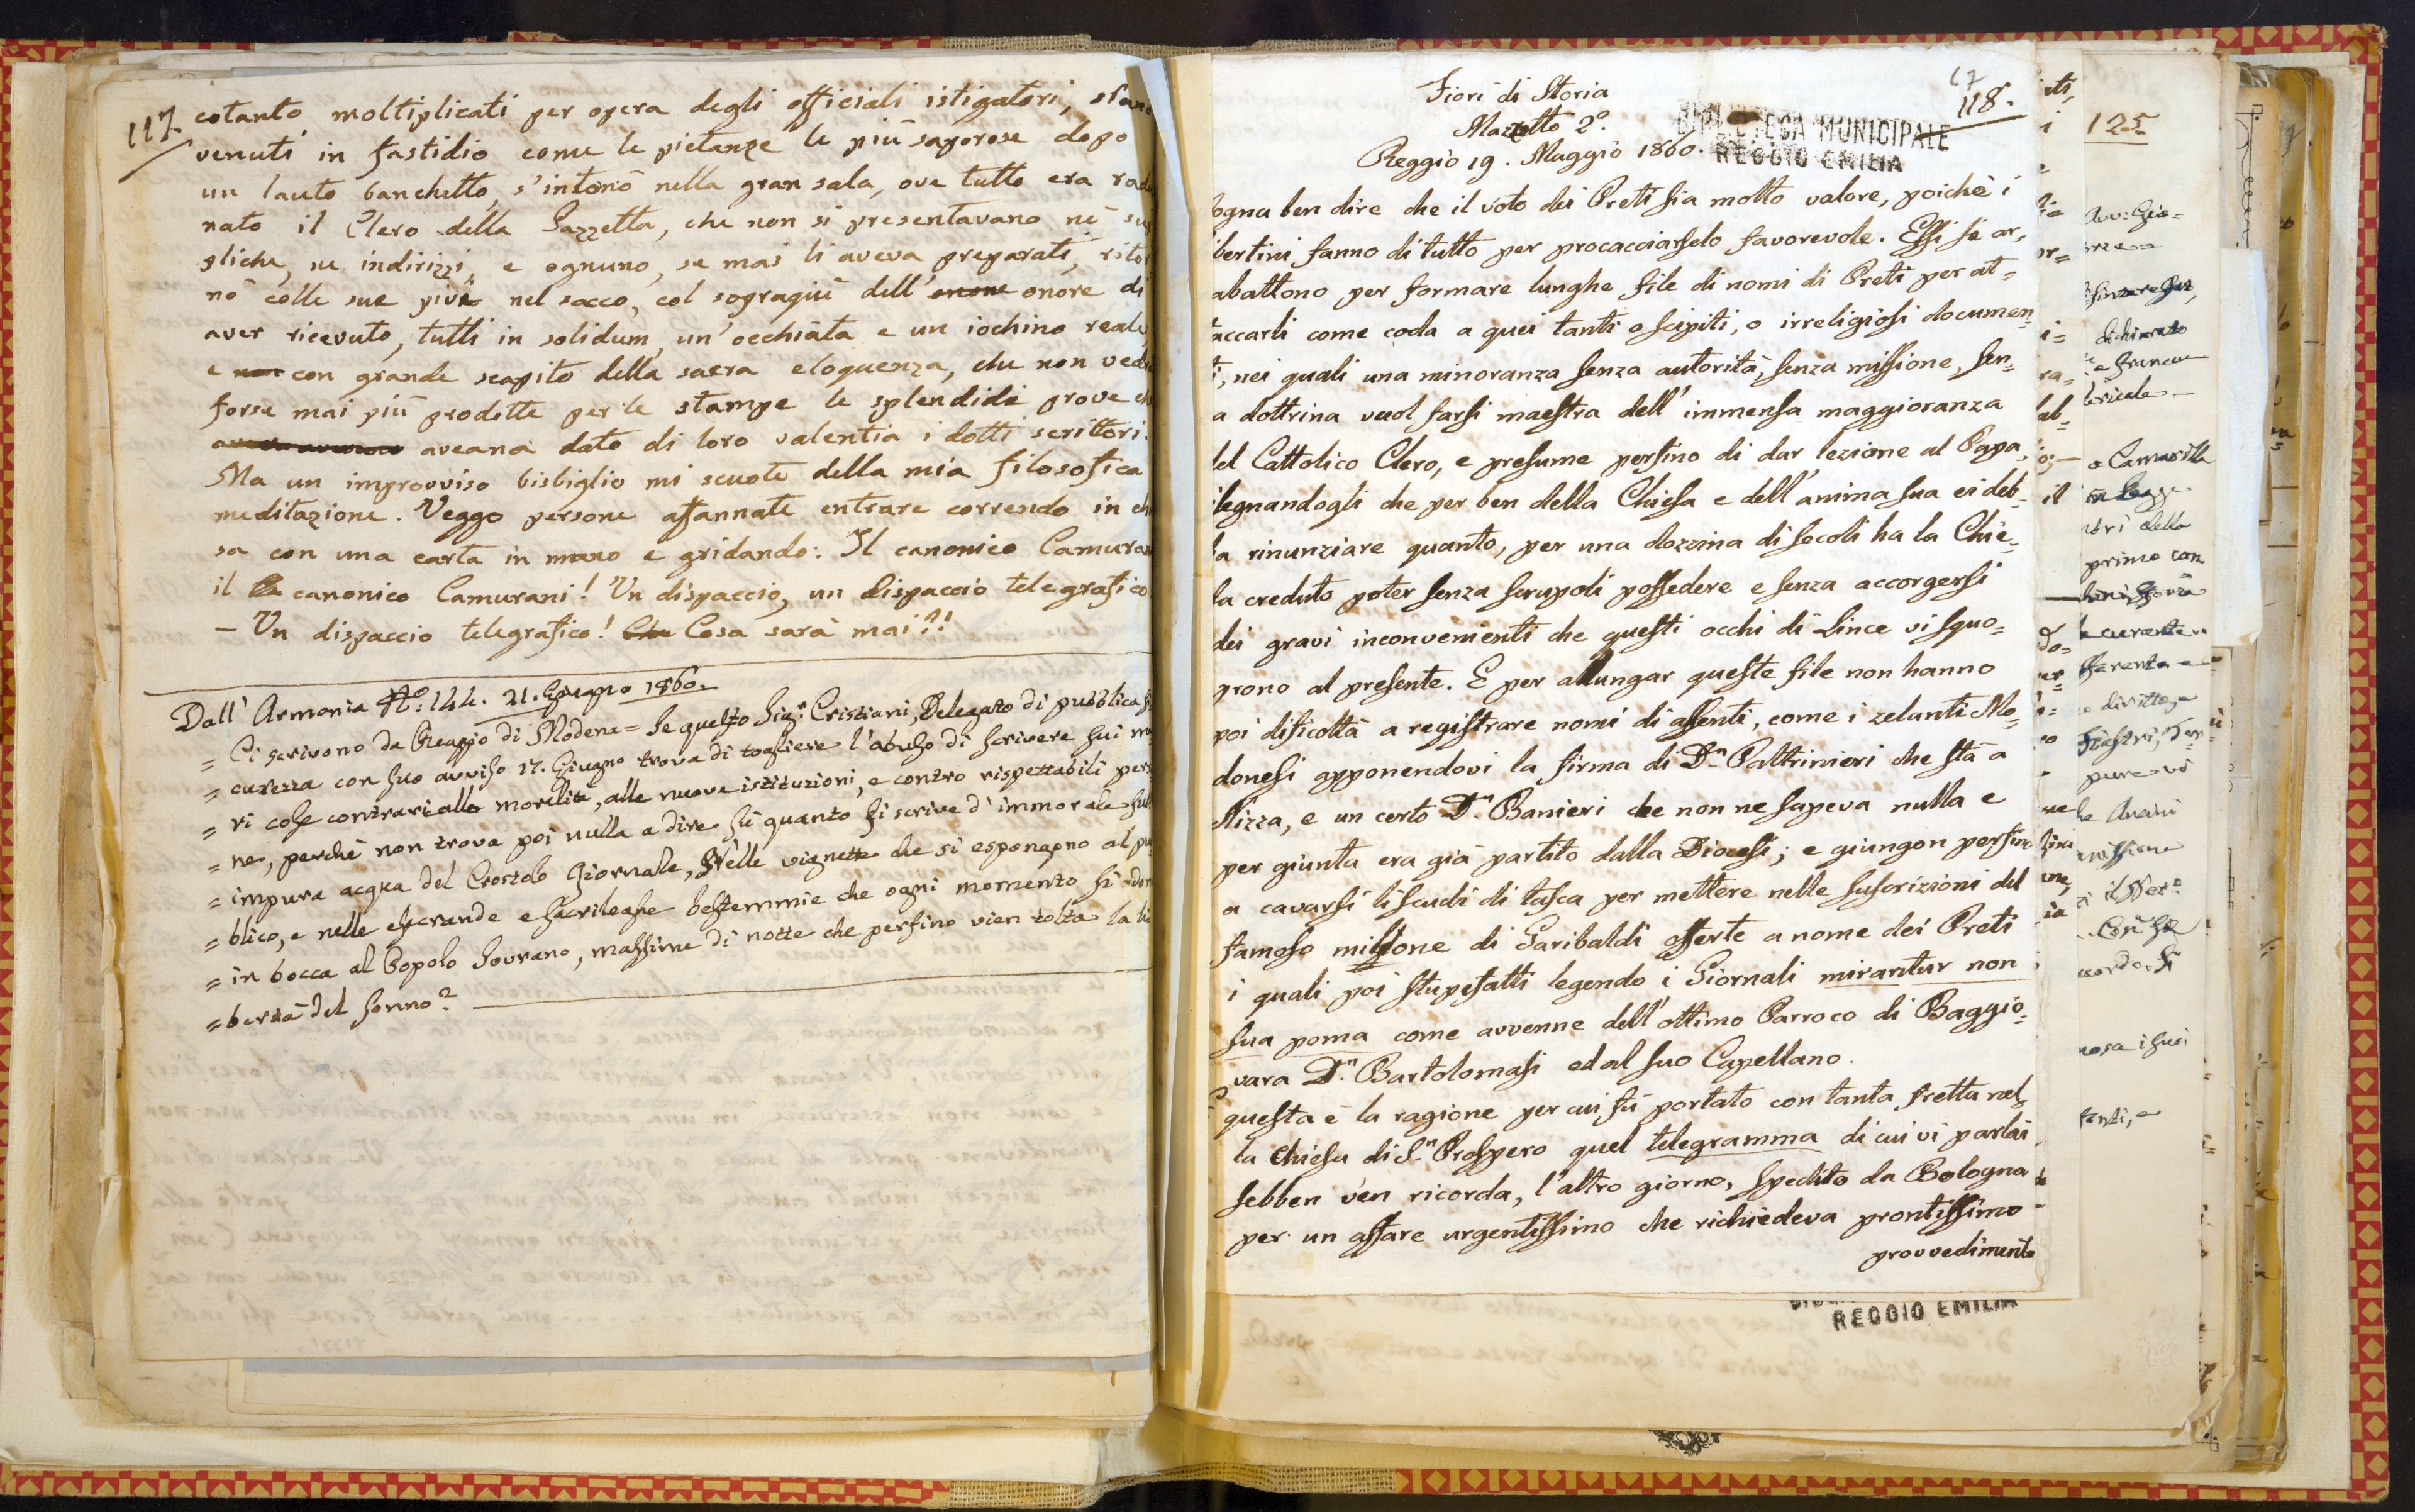 117.
cotanto moltiplicati per opera degli officiali istigatori,
venuti in fastidio come le pietanze le più saporose dopo
un lauto banchetto, s'intonò nella gran sala, ove tutto era
nato il Clero della Gazzetta, che non si presentavano nè
pliche, ne indirizzi, e ognuno, se mai li aveva preparati,
nò colle sue pive nel sacco, col sopragiù dell' onore di
aver ricevuto, tutti in solidum, un' occhiata e un iochino reale,
e con grande scapito della sacra eloquenza, che non
forse mai più prodotte per le stampe le splendide prove
aveana dato di loro valentia i dotti scrittori.
Ma un improvviso bisbiglio mi scuote della mia filosofica
meditazione. Veggo persone affannate entrare correndo in
sa con una carta in mano e gridando: Il canonico
il canonico Camurani! Un dispaccio, un dispaccio telegrafico
- Un dispaccio telegrafico! Cosa sarà mai?!
Dall' Armonia No: 144. 21. Giugno 1860.
= Ci scrivono da Reggio di Modena = Se questo Sigr. Cristiani, Delegato di pubblica
= curezza con suo avviso 17. Giugno trova di togliere l'abuso di scrivere sui
= ri cose contrarie alla moralità, alle nuove istituzioni, e contro rispettabili
= ne, perchè non trova poi nulla a dire sù quanto si scrive d' immorale
= impura acqua del Crostolo Giornale, nelle vignette che si espongono al
= blico, e nelle esecrande e sacrileghe bestemmie che ogni momento si
= in bocca al Popolo Sovrano, massime di notte che persino vien tolta la
= bertà del sonno?
Fiori di Storia
Mazzetto 2o.
Reggio 19. Maggio 1860.
118.
BIBLIOTECA MUNICIPALE
REGGIO EMILIA
ogna ben dire che il voto dei Preti sia molto valore, poichè i
ibertini fanno di tutto per procacciarselo favorevole. Essi si ar=
abattono per formare lunghe file di nomi di Preti per at=
taccarli come coda a quei tanti o scipiti, o irreligiosi documen=
ti, nei quali una minoranza senza autorità, senza missione, sen=
a dottrina vuol farsi maestra dell' immensa maggioranza
del Cattolico Clero, e presume persino di dar lezione al Papa,
segnandogli che per ben della Chiesa e dell' anima sua ei deb=
a rinunziare quanto, per una dozzina di secoli ha la Chie=
sa creduto poter senza scrupoli possedere e senza accorgersi
dei gravi inconvenienti che questi occhi di Lince vi squo=
prono al presente. E per allungar queste file non hanno
poi dificoltà a registrare nomi di assenti, come i zelanti Mo=
donesi apponendovi la firma di Dn. Paltrinieri che stà a
Nizza, e un certo Dn. Banieri che non ne sapeva nulla e
per giunta era già partito dalla Diocesi; e giungon persino
a cavarsi li scudi di tasca per mettere nelle suscrizioni del
famoso milione di Garibaldi offerte a nome dei Preti
i quali poi stupefatti legendo i Giornali mirantur non
sua poma come avvenne dell' ottimo Parroco di Baggio=
vara Dn. Bartolomasi ed al suo Capellano.
questa è la ragione per cui fù portato con tanta fretta nel=
la chiesa di Sn. Prospero quel telegramma di cui vi parlai,
sebben v'en ricorda, l'altro giorno, spedito da Bologna
per un affare urgentissimo che richiedeva prontissimo
provvedimento
REGGIO EMILIA
125
dichiarato
e francue
o Camarilla
in Legge
della
primo con
diritto, e
pure vi